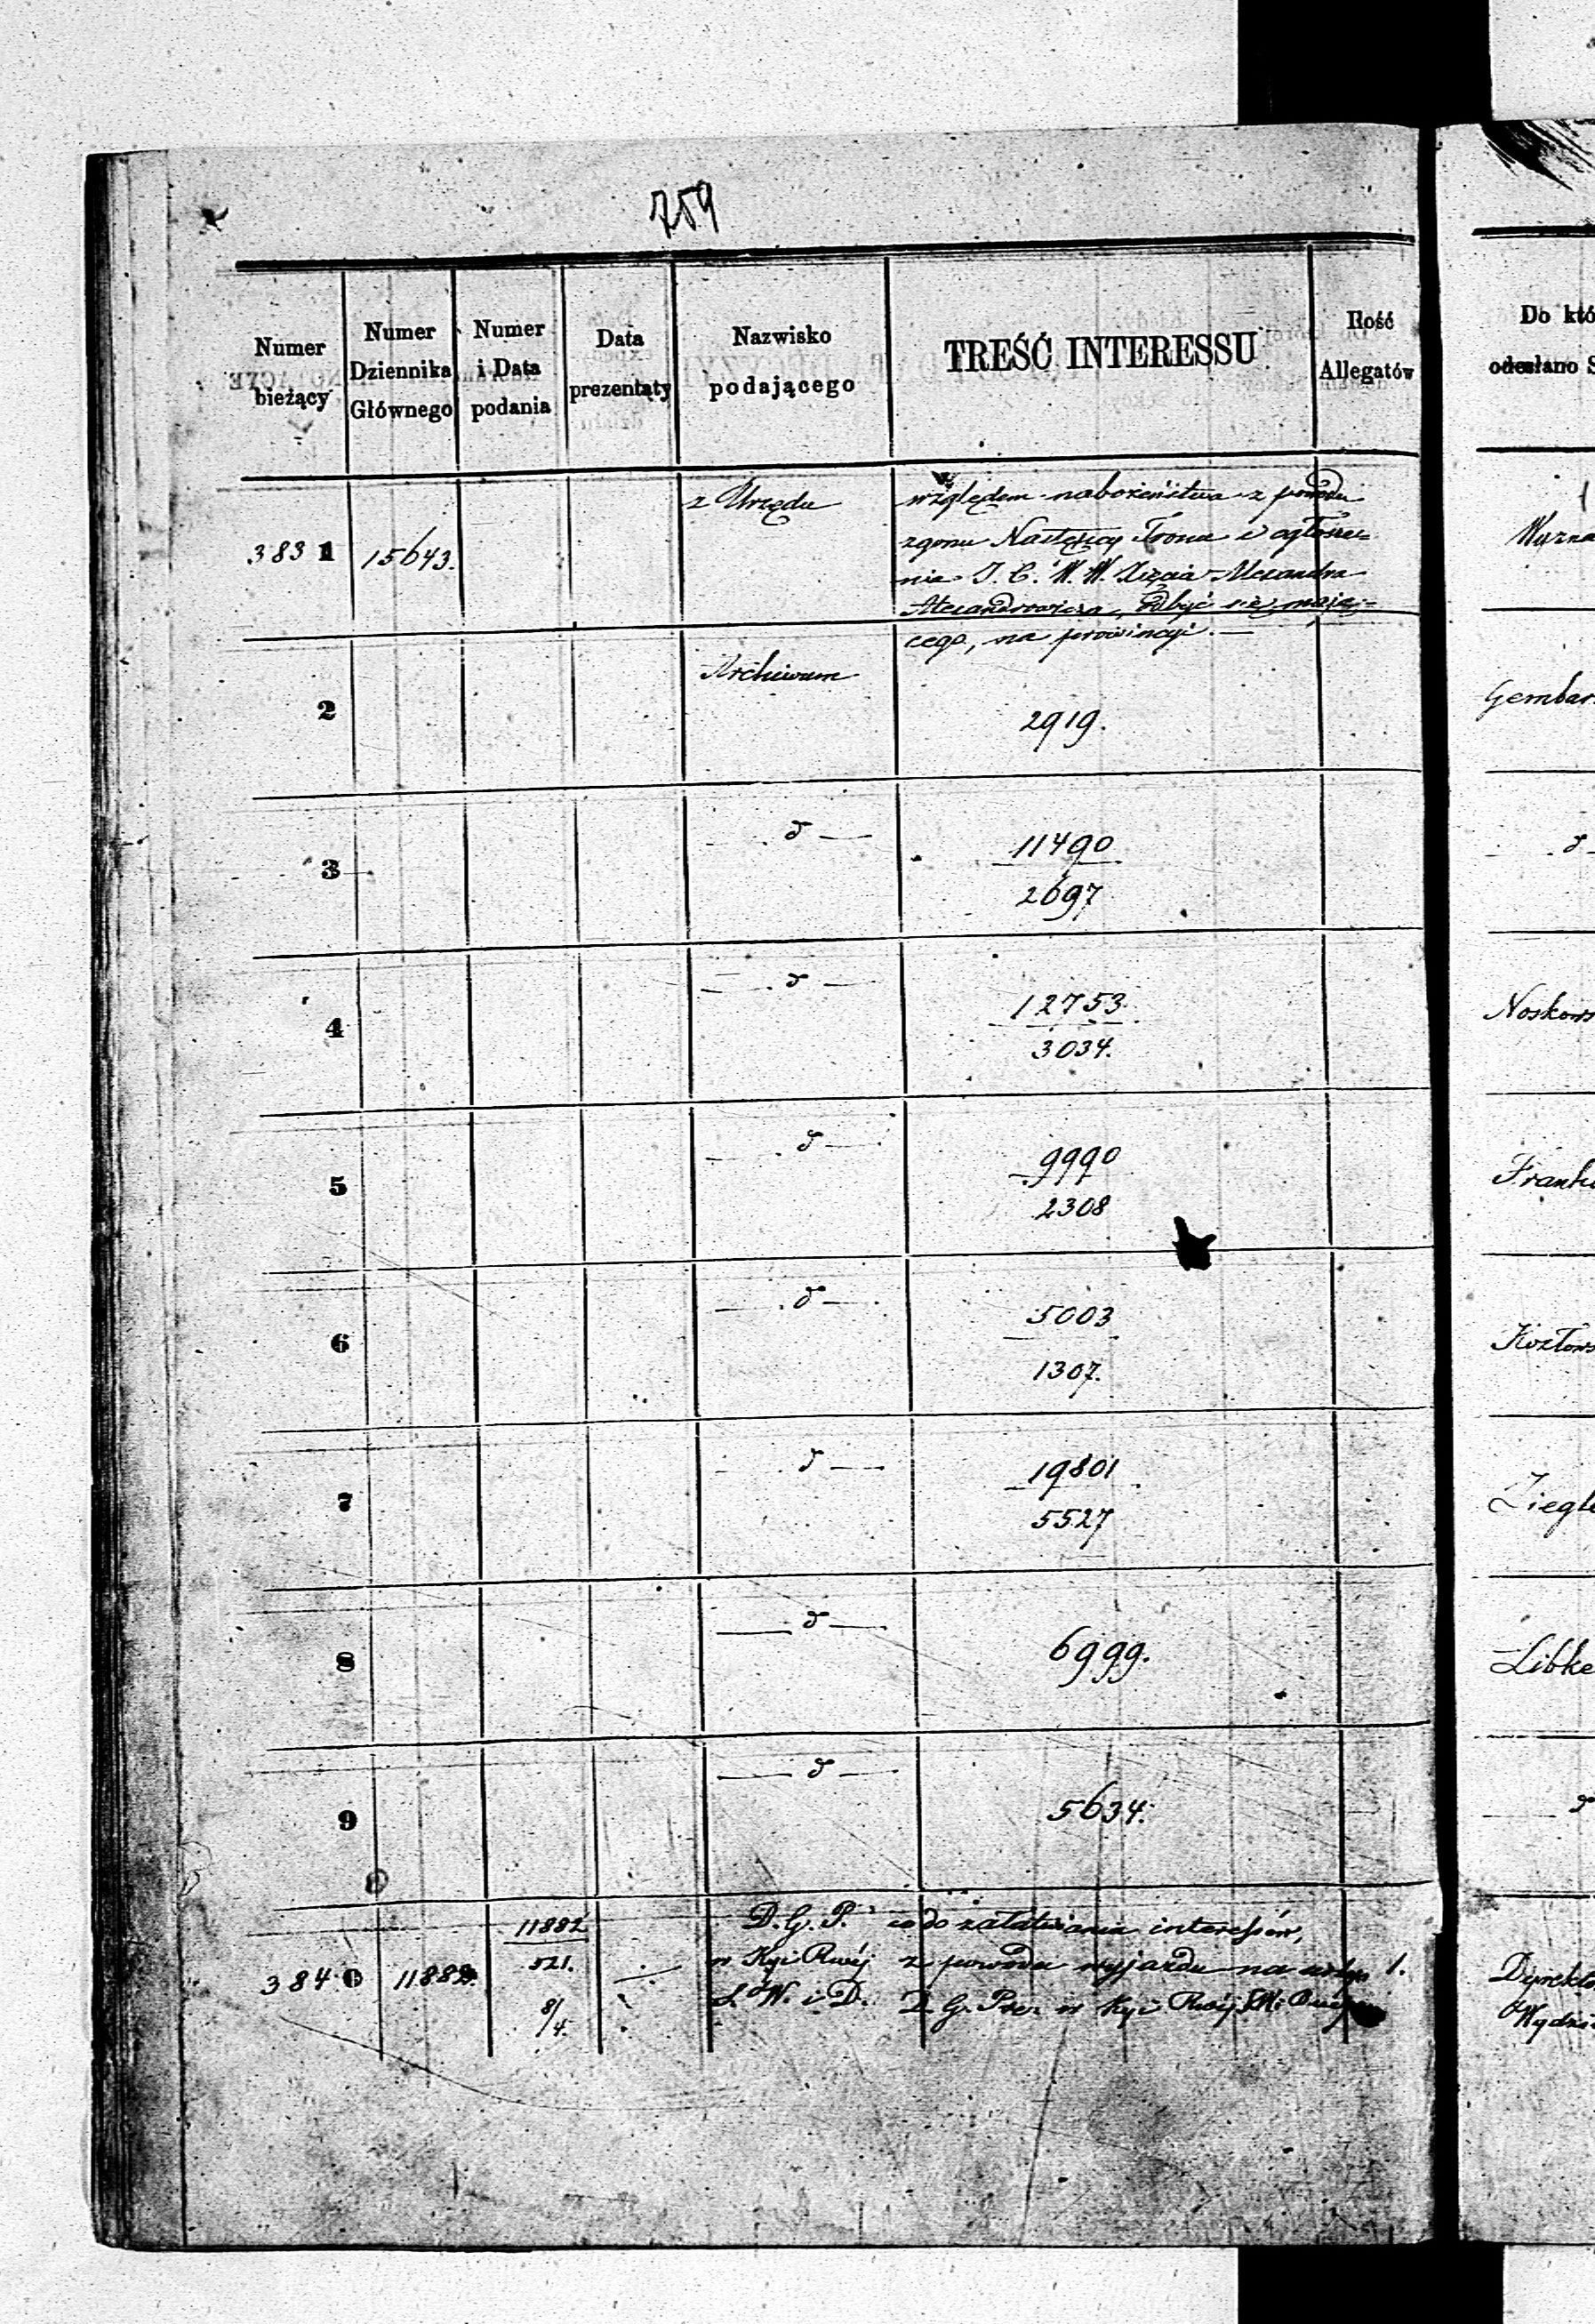 759
Numer bieżący
Numer Dziennika Głównego
Numer i Data podania
Data prezentąty
Nazwisko podającego
TREŚĆ INTERESSU
Ilość Allegatów
Do któ
odesłano S
3831 15643. z Urzędu względem nabożeństwa z powodu
zgonu Następcy Tronu i ogłosze-
nia J. C. W. W. Xięcia Alexandra
Alexandrowicza, odbyć się mają-
cego, na prowincyi. —
Wozna
2 Archiwum 2919. Gembar
3 — d — 11490
2697
d
4 — d — 12753
3034.
Noskows
5 — d — 9990
2308
Frank
6 — d — 5003
1307.
Kozłows
7 — d — 19801
5527
Ziegle
8 — d — 6999. Libke
9 — d — 5634. d
3840 11882 11882
521.
8/4.
D. G. P. co do załatwiania interessów,
w Kyi Rwéj z powodu wyjazdu na 1.
S. W. i D. D. G. Prez w Kyi Rwéj
Dyrekto
Wydzia